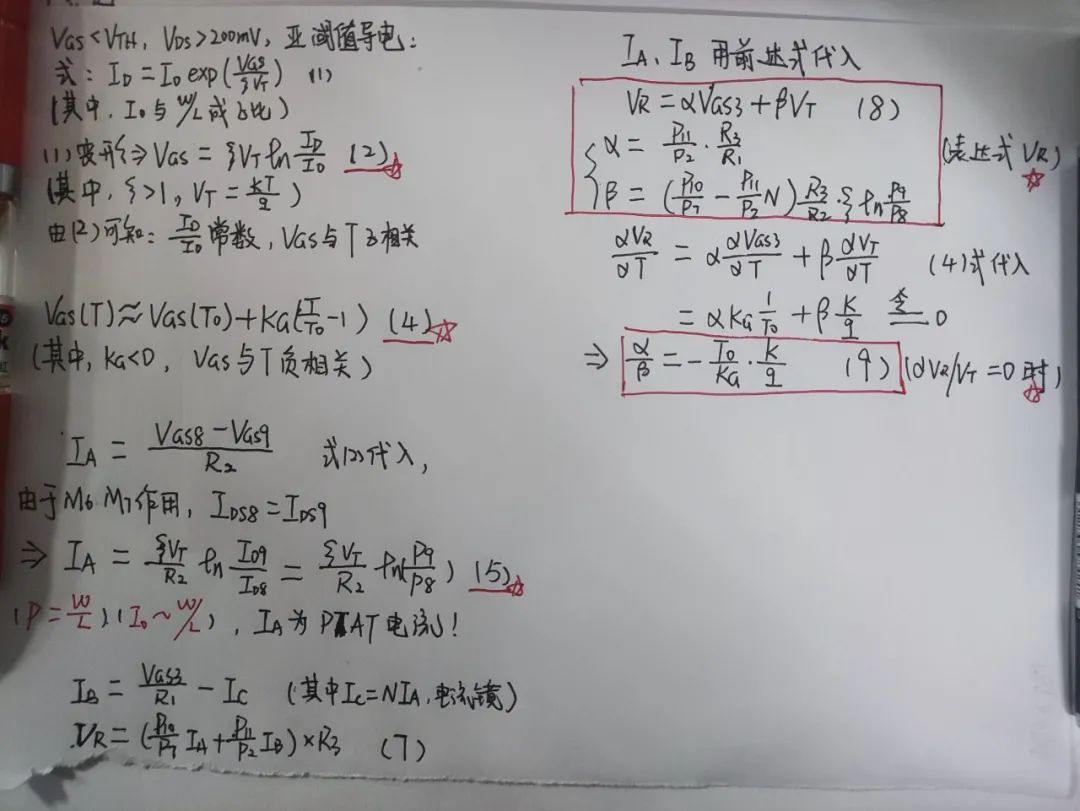 VGS<VTH, VDS>200mV, 亚阈值导电:
式: ID = I0 exp(VGS/ξVT) (1)
(其中, I0与W/L成正比)
(1)变形⇒VGS = ξVT ln ID/I0 (2)☆
(其中, ξ>1, VT = KT/q)
由(2)可知: ID/I0 常数, VGS与T正相关
VGS(T)≈VGS(T0)+KG(T/T0-1) (4)☆
(其中, KG<0, VGS与T负相关)
IA = (VGS8-VGS9)/R2 式(2)代入,
由于M6 M7作用, IDS8=IDS9
⇒ IA = ξVT/R2 ln I09/I08 = ξVT/R2 ln(P9/P8) (5)☆
(P=W/L)(I0~W/L), IA为PTAT电流!
IB = VGS3/R1 - IC (其中IC=NIA, 电流镜)
VR = (P10/P7 IA + P11/P2 IB)×R3 (7)
IA、IB 用前述式代入
VR = αVGS3 + βVT (8)
α = P11/P2 · R3/R1
β = (P10/P7 - P11/P2 N) R3/R2 · ξ ln P9/P8
(表达式 VR)☆
αVR/αT = α αVGS3/αT + β αVT/αT (4)式代入
= αKG 1/T0 + β K/q 令= 0
⇒ α/β = - T0/KG · K/q (9) (αVR/VT=0时)☆